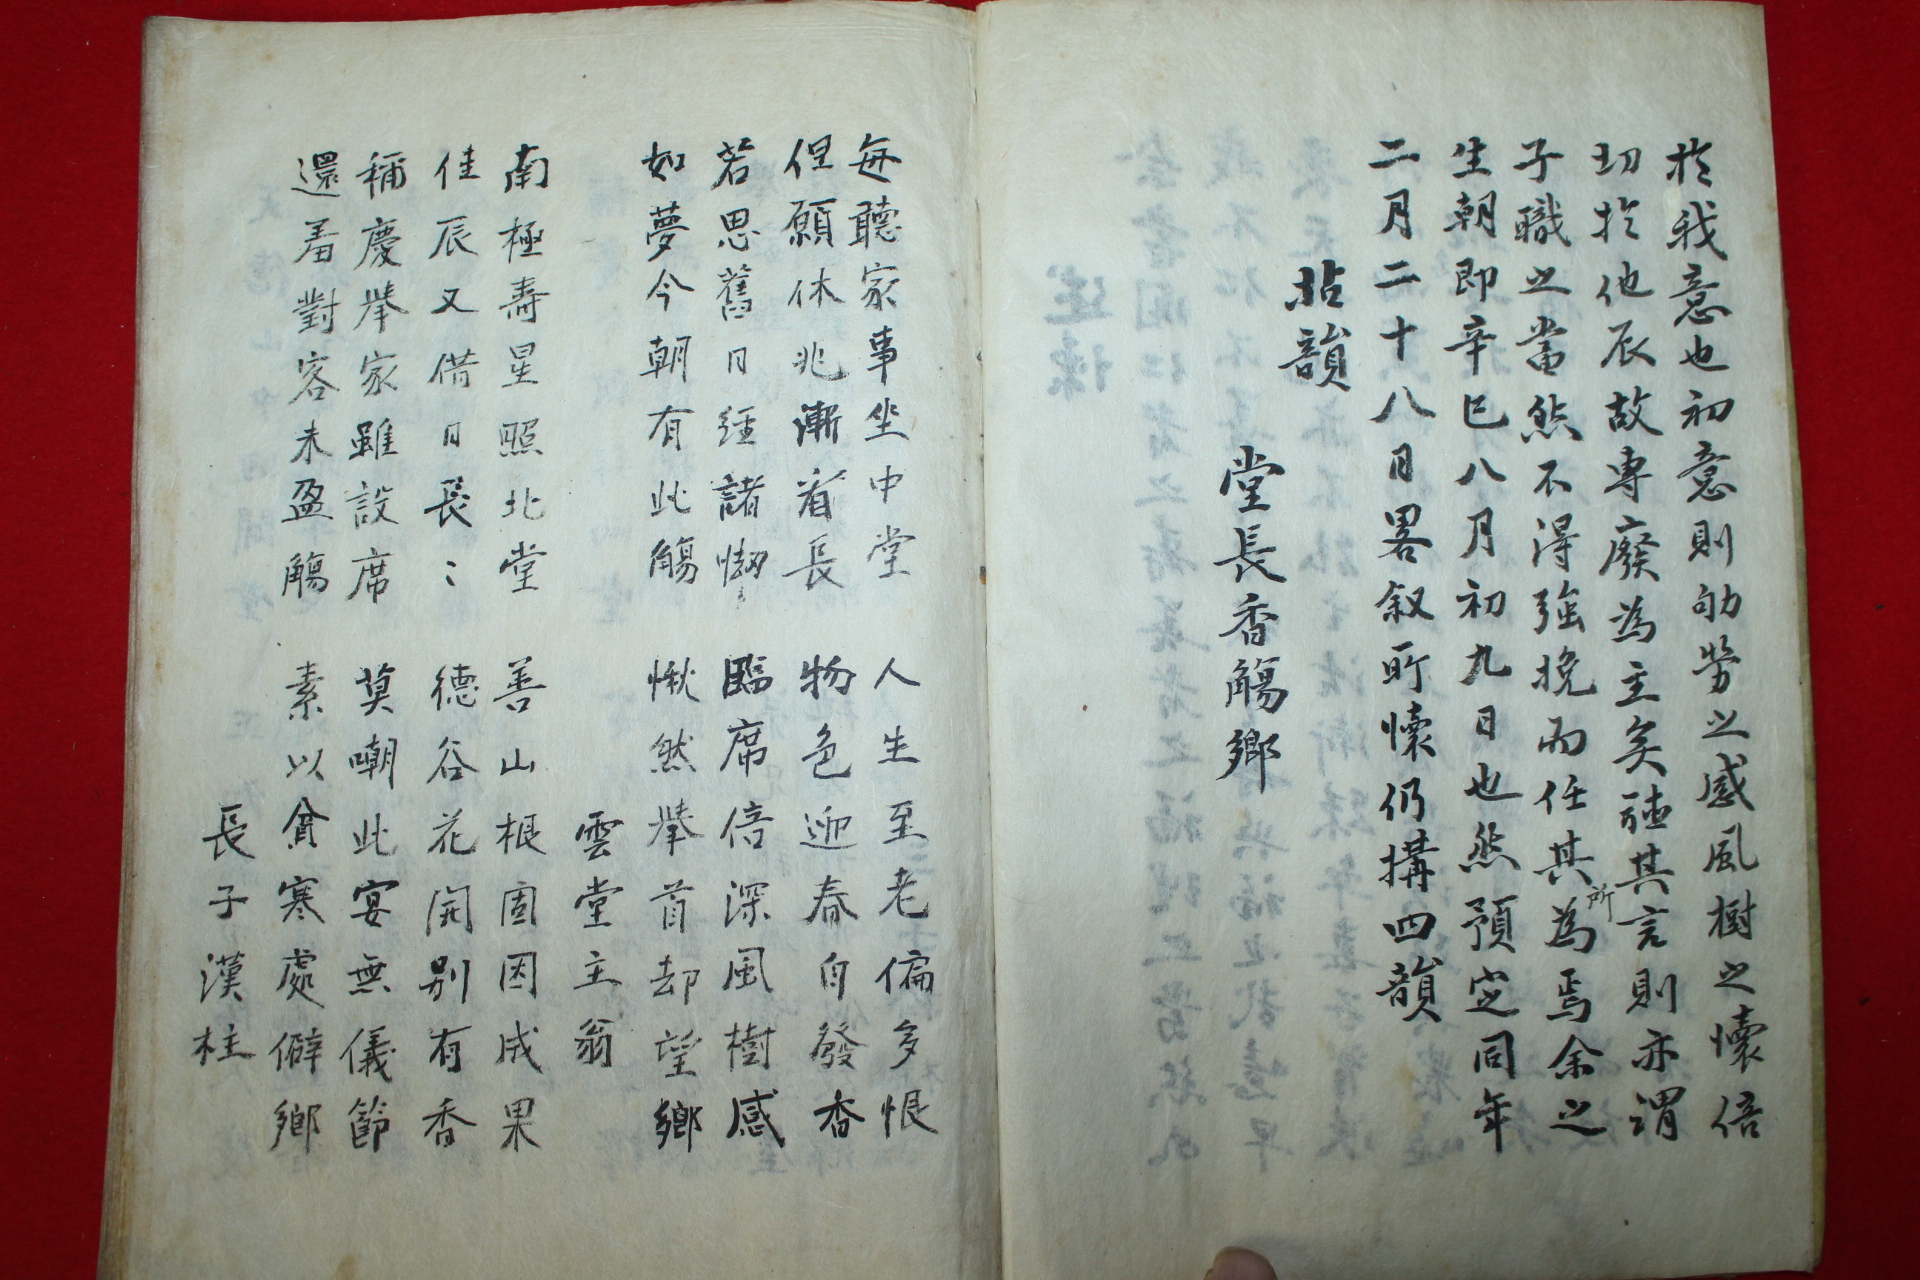 於我意也初意則劬勞之感風樹之懷倍
切於他辰故專廢為主矣聽其言則亦謂
子職之當然不得強挽而任其所為焉余之
生朝即辛巳八月初九日也然預定同年
二月二十八日畧叙所懷仍搆四韻
拈韻
堂長香觴鄉
每聽家事坐中堂 人生至老偏多恨
但願休兆漸看長 物色迎春自發香
若思舊日經諸 臨席倍深風樹感
如夢今朝有此觴 愀然擧首却望鄉
雲堂主翁
南極壽星照北堂 善山根固因成果
佳辰又借日長〻 德谷花開別有香
稱慶举家雖設席 莫嘲此宴無儀節
還羞對客未盈觴 素以貧寒處僻鄉
長子漢柱